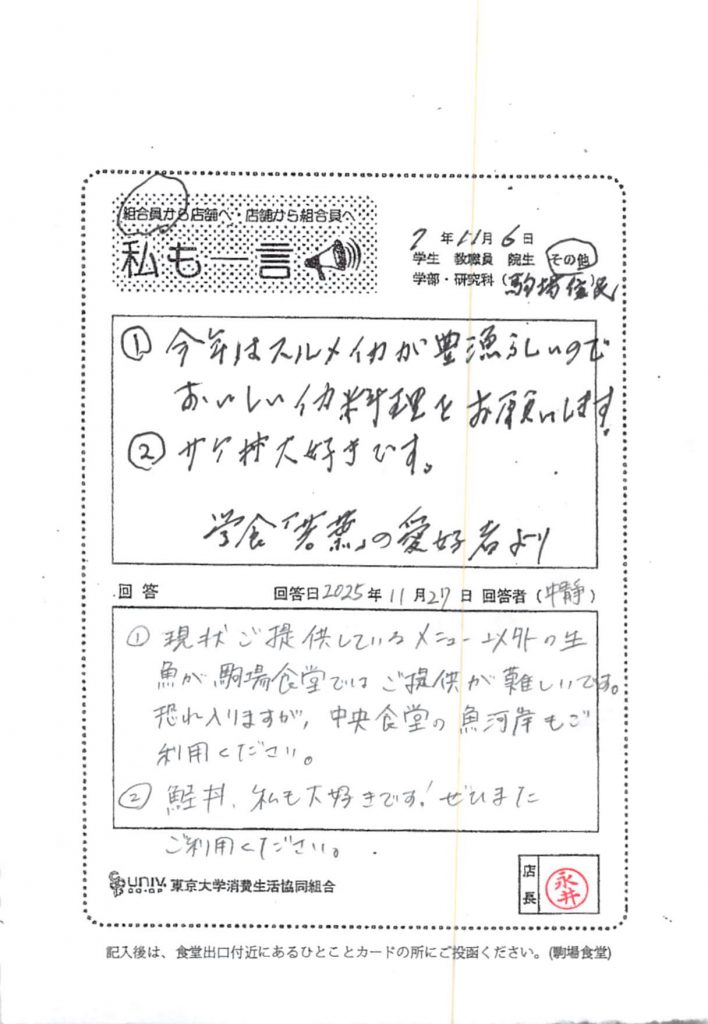 組合員から店舗へ・店舗から組合員へ
私も一言
7年11月6日
学生 教職員 院生 その他
学部・研究科 (駒場住民
① 今年はスルメイカが豊漁らしいので
おいしいイカ料理をお願いします!
② サケ丼大好きです。
学食「若葉」の愛好者より
回答 回答日2025年11月27日 回答者(中静)
① 現状ご提供しているメニュー以外の生
魚が、駒場食堂ではご提供が難しいです。
恐れ入りますが、中央食堂の魚河岸もご
利用ください。
② 鮭丼、私も大好きです!ぜひまた
ご利用ください。
UNIV. CO-OP 東京大学消費生活協同組合
店長 永井
記入後は、食堂出口付近にあるひとことカードの所にご投函ください。(駒場食堂)